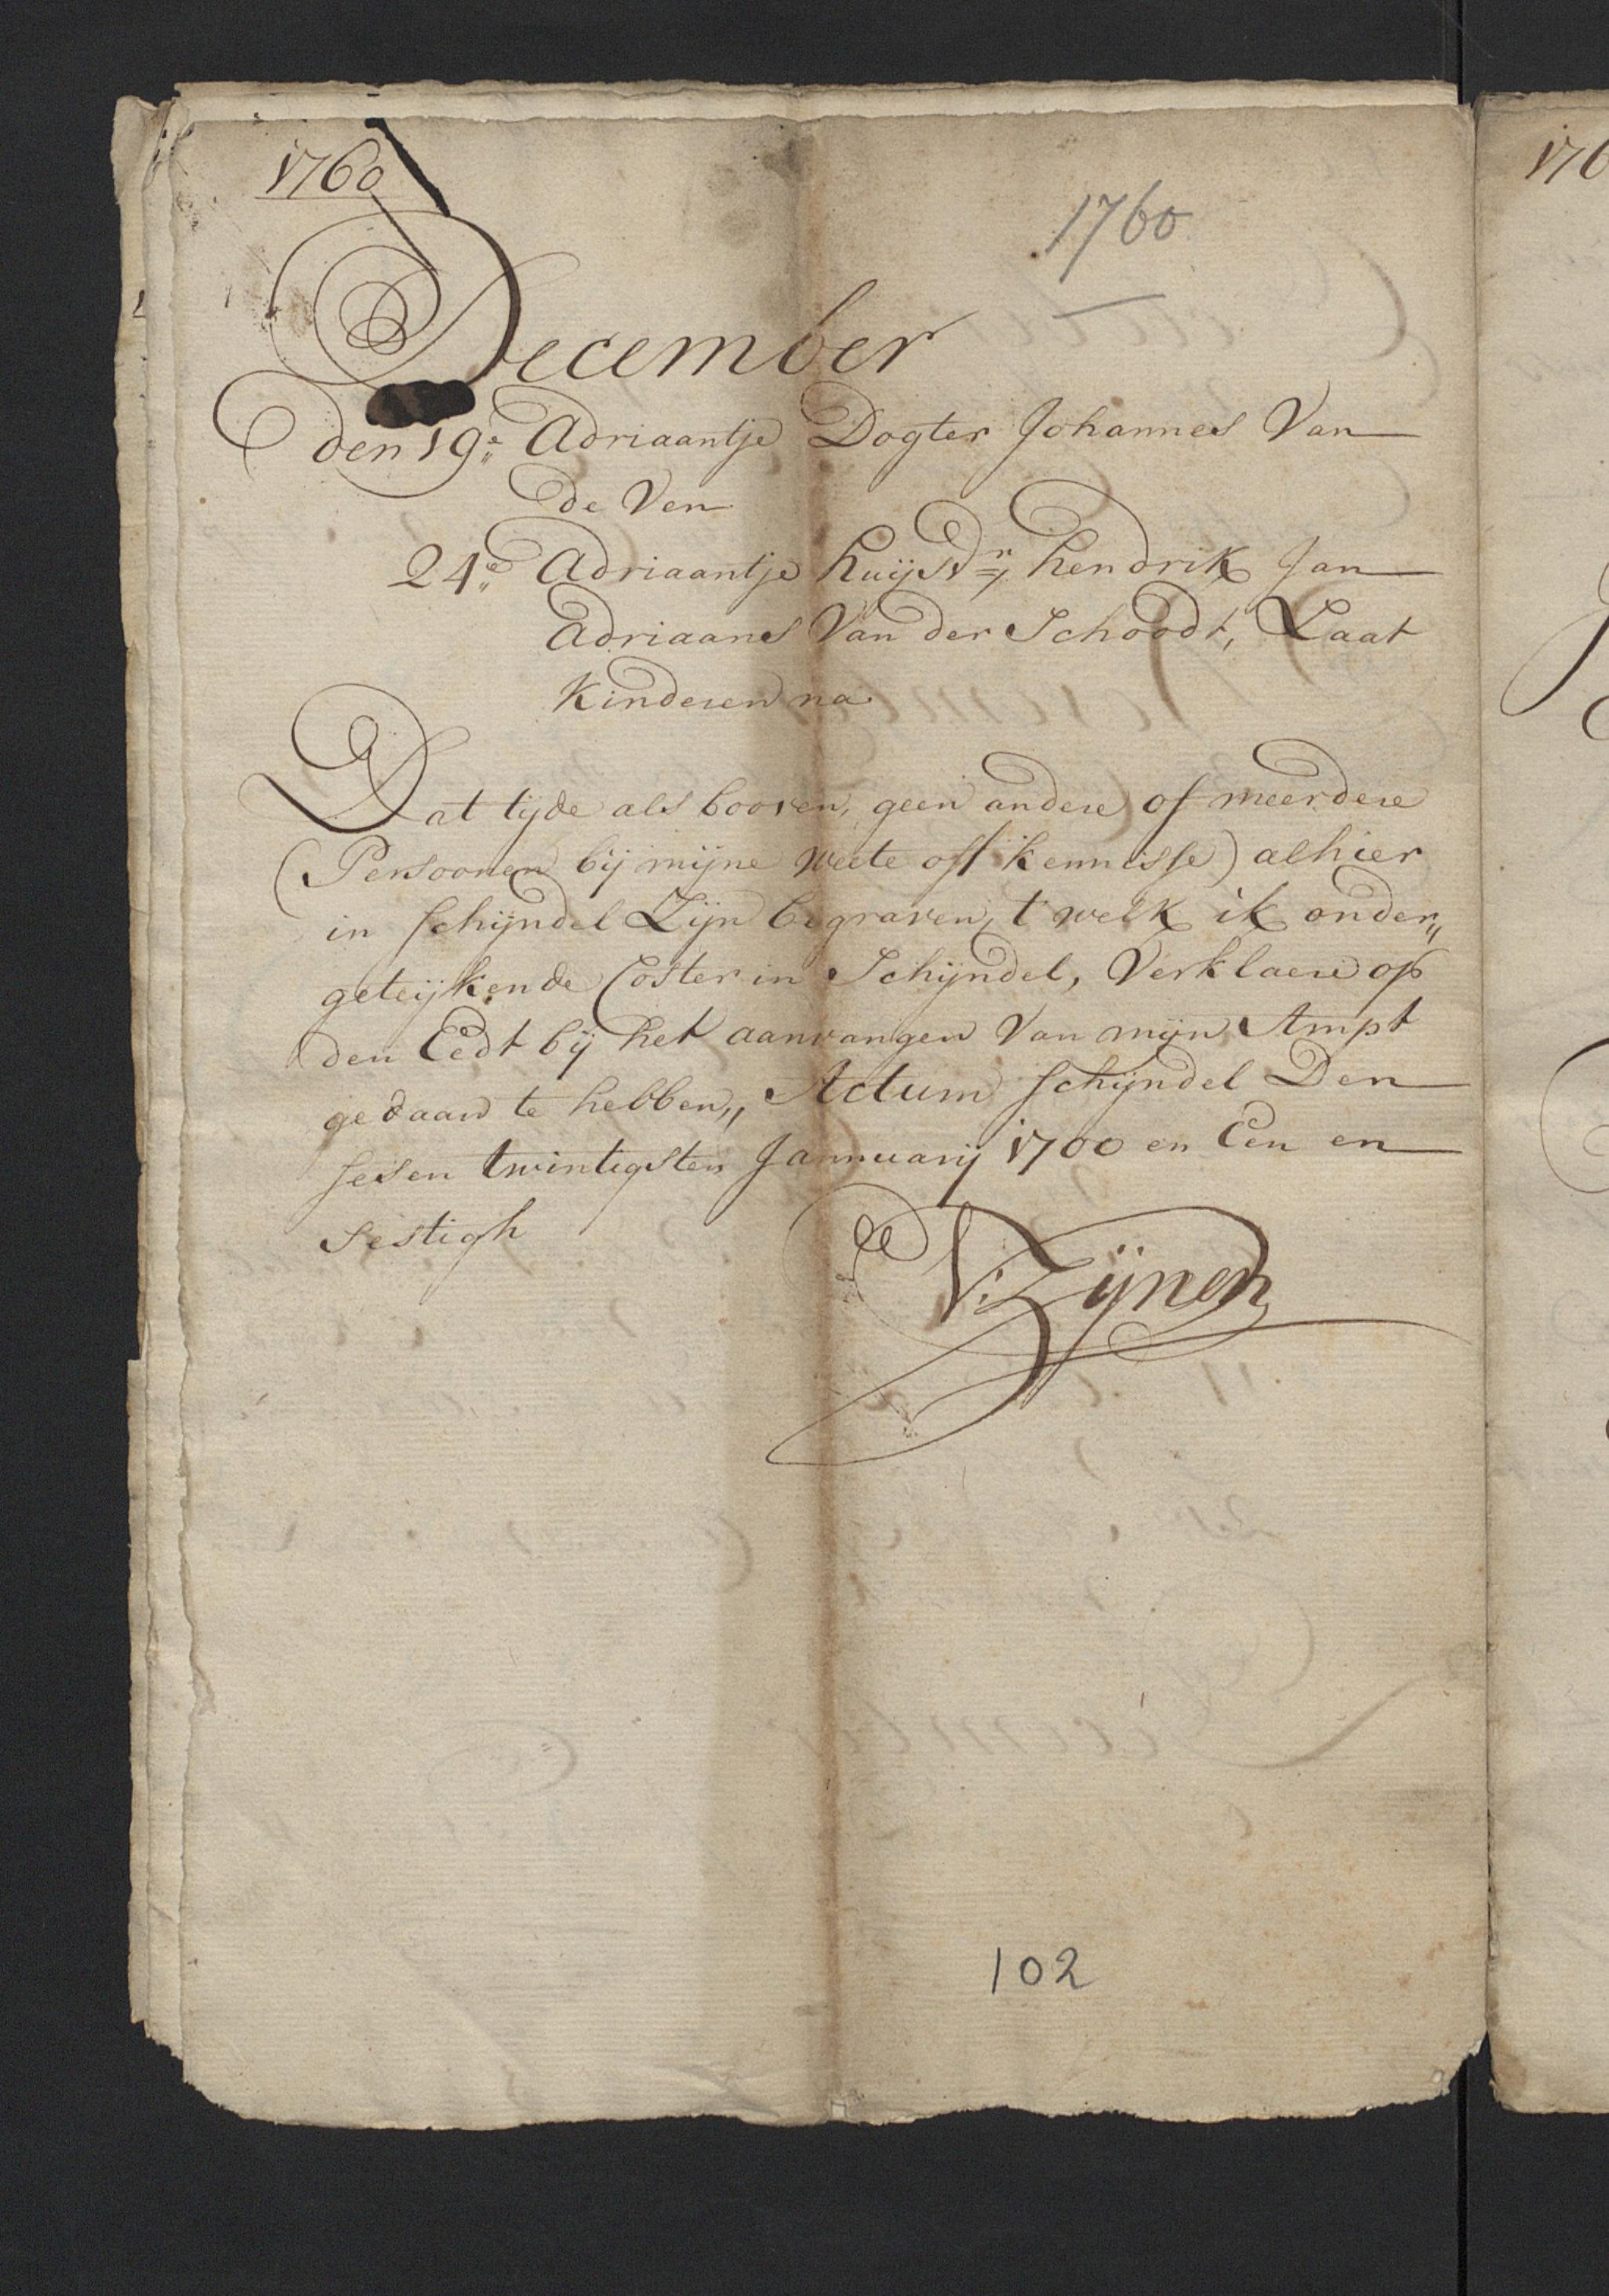 1760
1760
December
den 19e Adriaantje Dogter Johannes Van
de Ven
24e Adriaantje huijsvr hendrik Jan
Adriaans Van der Schoodt, Laat
Kinderen na
Dat tijde als booven, geen andere of meerdere
(Persoonen bij mijne weete off kennisse) alhier
in schijndel Zijn begraven, t welk ik onder„
geteijkende Coster in Schijndel, Verklaere op
den Eedt bij het aanvangen Van mijn Ampt
gedaan te hebben„ Actum schijndel Den
sesen twintigsten Jannuarij 1700 en Een en
sestigh
V: Zijnen
102
176